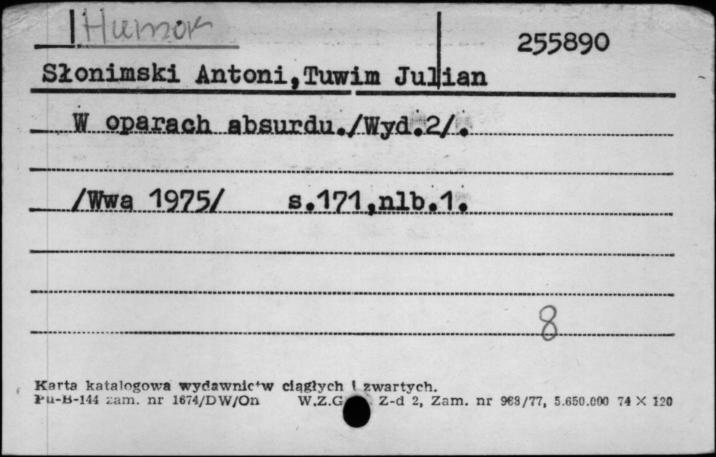 Humor
255890
Słonimski Antoni,Tuwim Julian
W oparach absurdu./Wyd.2/.
/Wwa 1975/ s.171,nlb.1.
8
Karta katalogowa wydawnictw ciągłych i zwartych.
Pu-B-144 zam. nr 1674/DW/On W.Z.G. Z-d 2, Zam. nr 968/77, 5.650.000 74 × 120